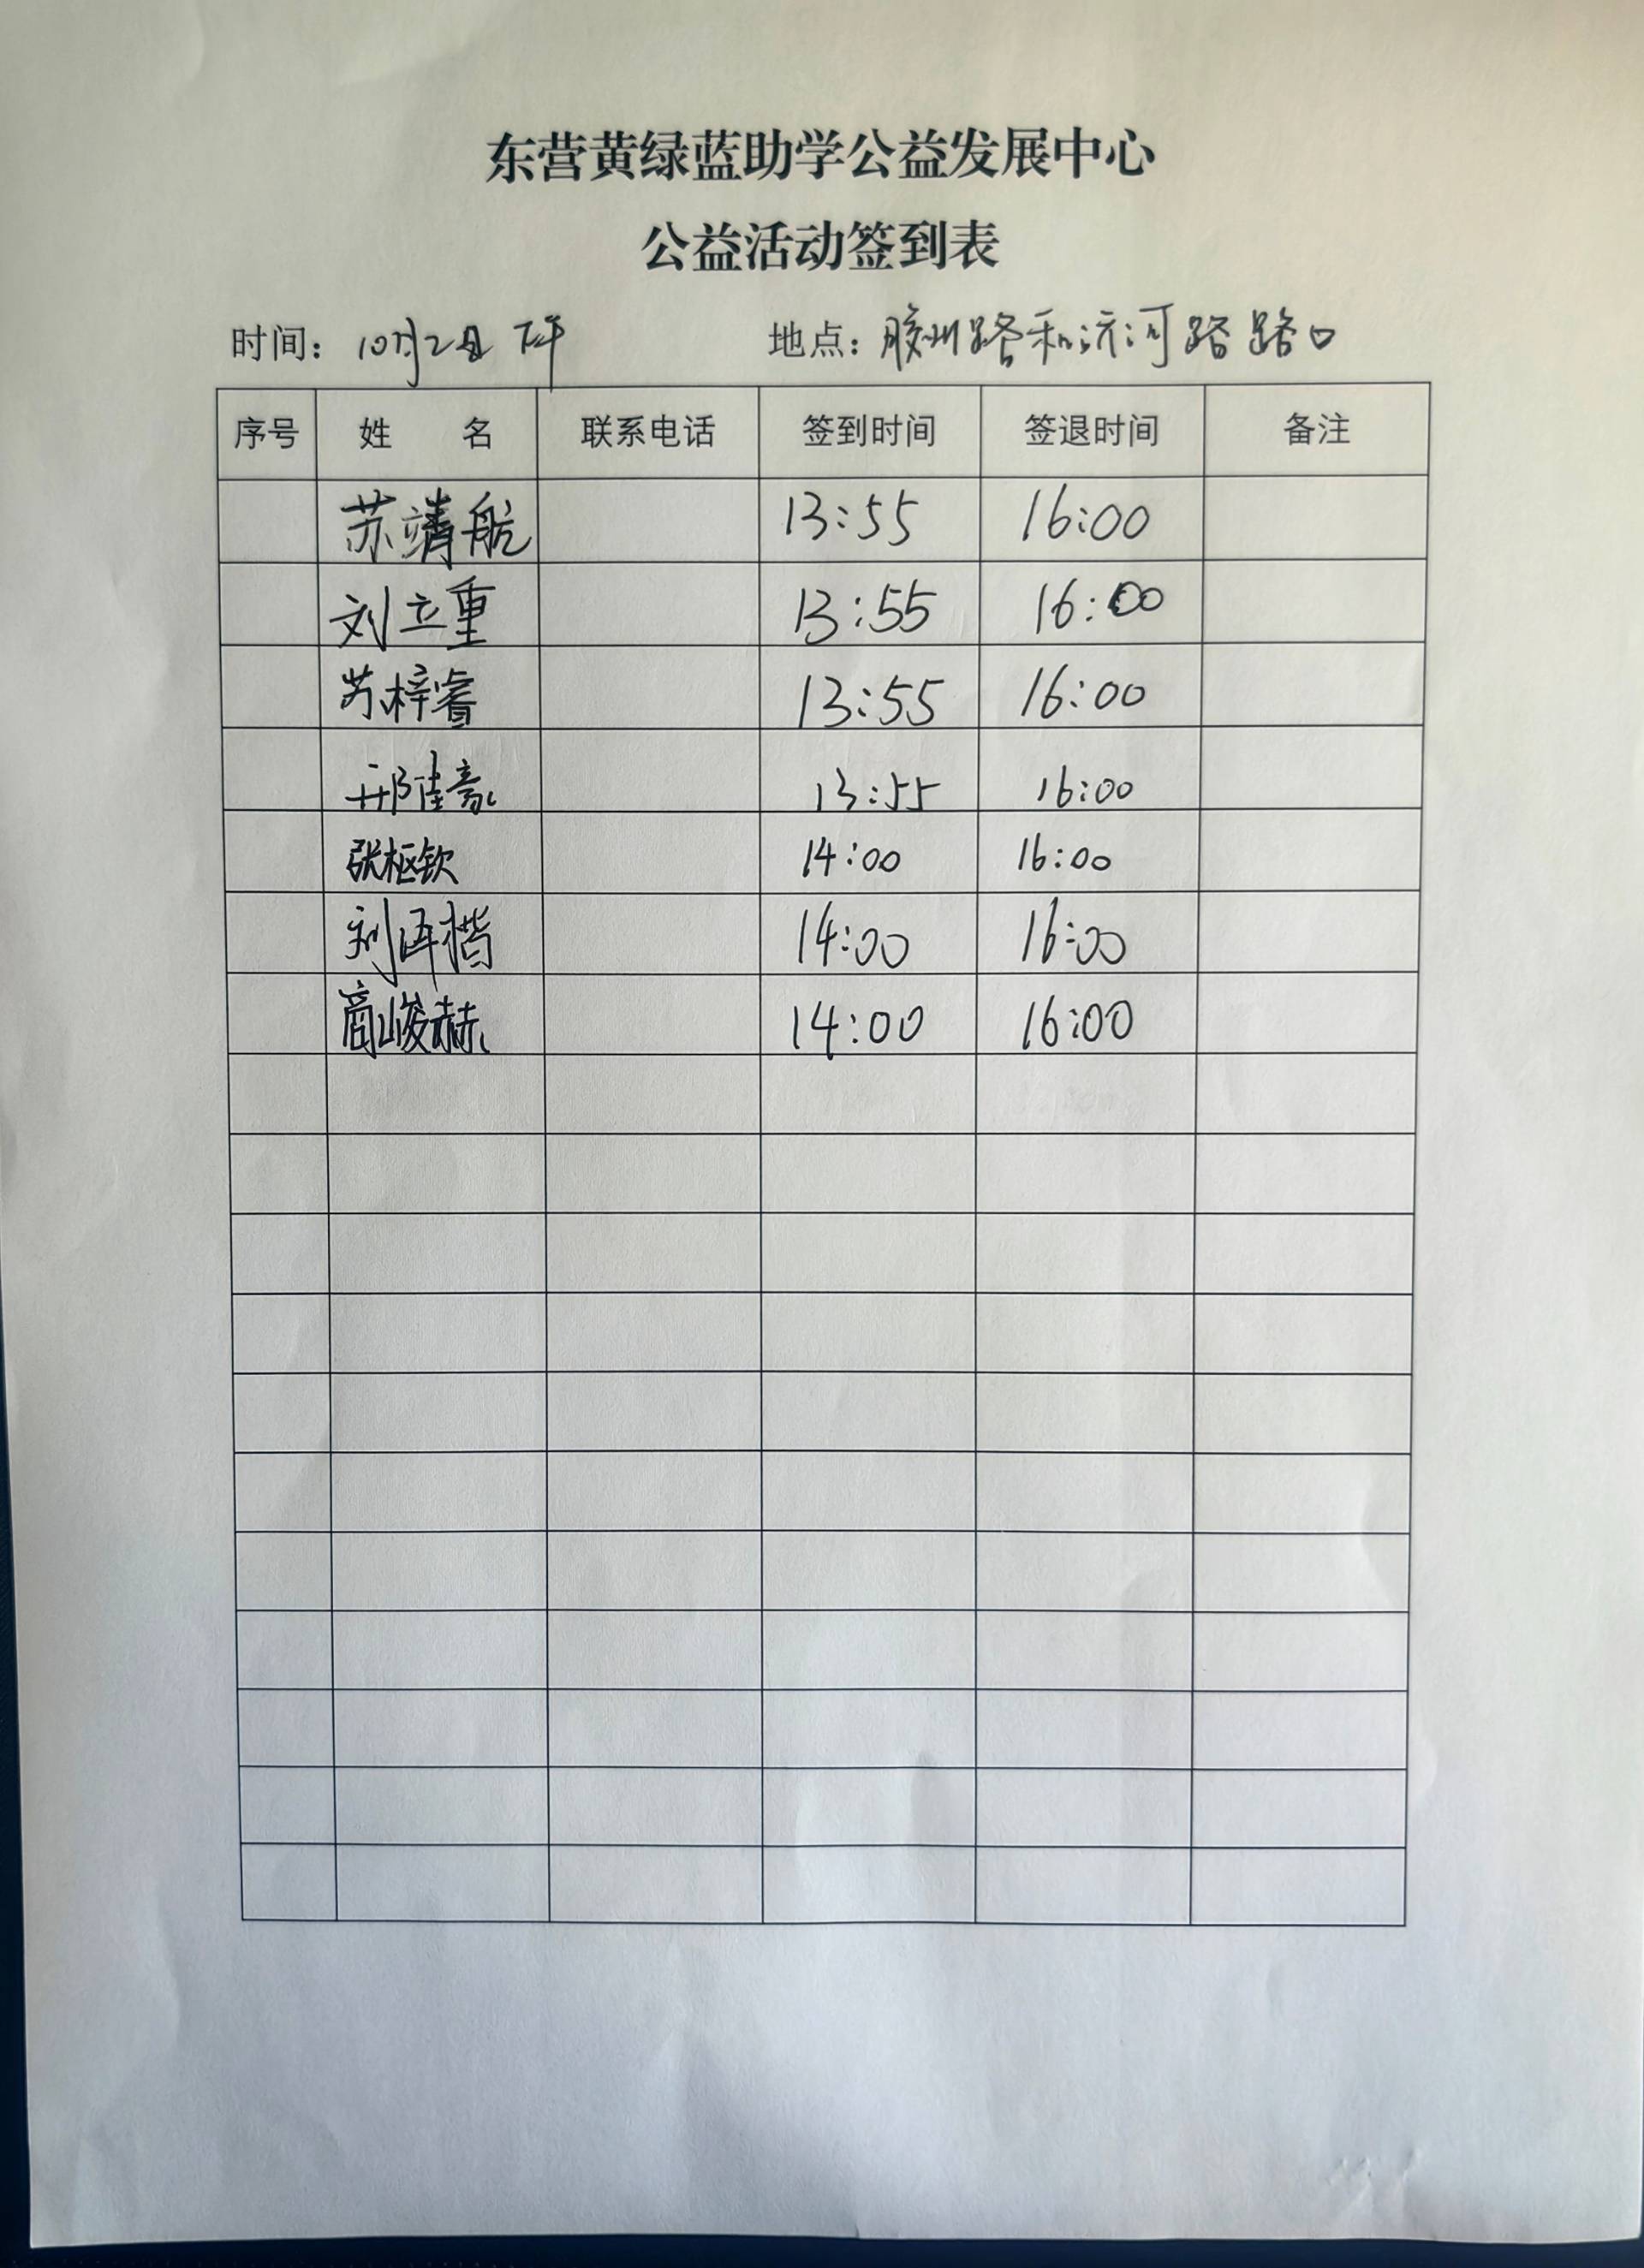 东营黄绿蓝助学公益发展中心
公益活动签到表
时间：10月2日 下午 地点：胶州路和沂河路路口
序号 姓 名 联系电话 签到时间 签退时间 备注
苏靖航 13:55 16:00
刘立重 13:55 16:00
苏梓睿 13:55 16:00
邢佳豪 13:55 16:00
张枢钦 14:00 16:00
刘洢楷 14:00 16:00
商峻赫 14:00 16:00